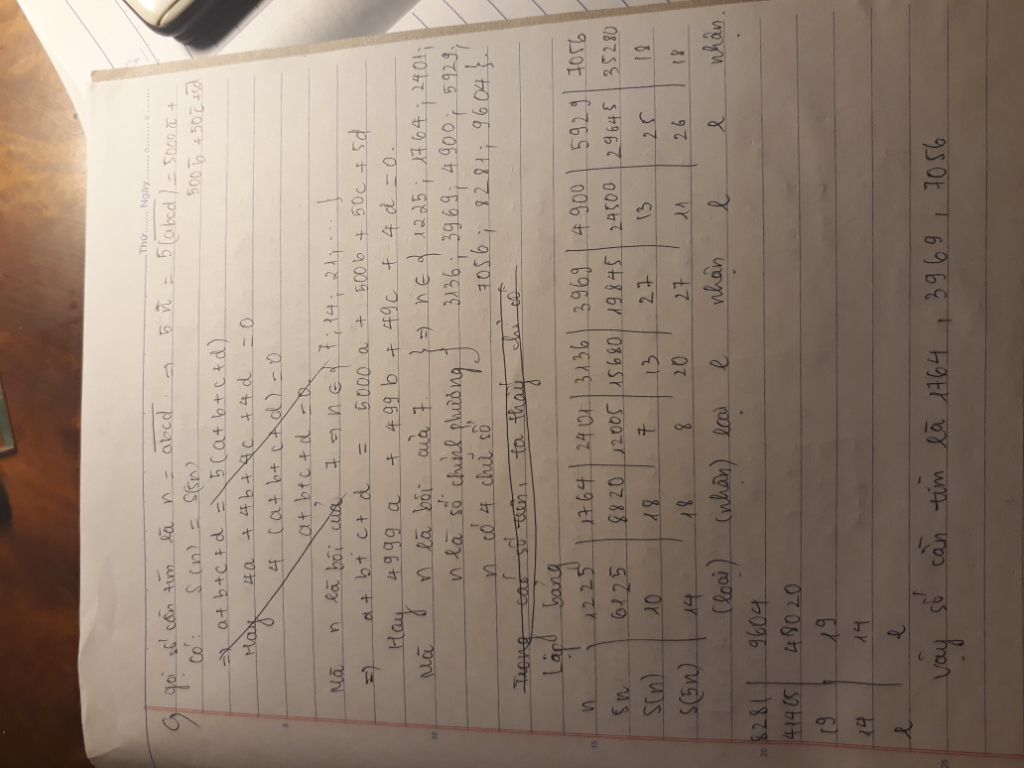 Thứ........ Ngày............
gọi số cần tìm là n = abcd. => 5n = 5(abcd) = 5000a +
500b + 50c + 5d
có: S(n) = S(5n)
=> a+b+c+d = 5(a+b+c+d)
Hay 4a + 4b + 4c + 4d = 0
4 (a+b+c+d) = 0
a+b+c+d = 0
Mà n là bội của 7 => n ∈ { 7, 14, 21, ... }
=> a+b+c+d = 5000a + 500b + 50c + 5d
Hay 4999a + 499b + 49c + 4d = 0.
Mà n là bội của 7.
n là số chính phương
n có 4 chữ số } => n ∈ { 1225; 1764; 2401;
3136; 3969; 4900; 5929;
7056; 8281; 9604 }.
Trong các số trên, ta thấy chỉ có
Lập bảng
n | 1225 | 1764 | 2401 | 3136 | 3969 | 4900 | 5929 | 7056
5n | 6125 | 8820 | 12005 | 15680 | 19845 | 24500 | 29645 | 35280
S(n) | 10 | 18 | 7 | 13 | 27 | 13 | 25 | 18
S(5n) | 14 | 18 | 8 | 20 | 27 | 11 | 26 | 18
(loại) (nhận) loại l nhận l l nhận.
8281 | 9604
41405 | 48020
19 | 19
14 | 14
l l
Vậy số cần tìm là 1764, 3969, 7056
5
10
15
20
25